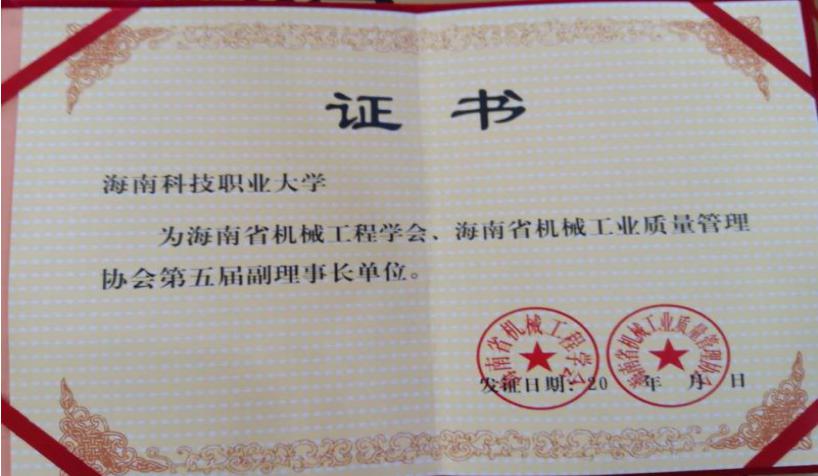 证书
海南科技职业大学
为海南省机械工程学会、海南省机械工业质量管理
协会第五届副理事长单位。
海南省机械工程学会
海南省机械工业质量管理协会
发证日期：20 年 月 日